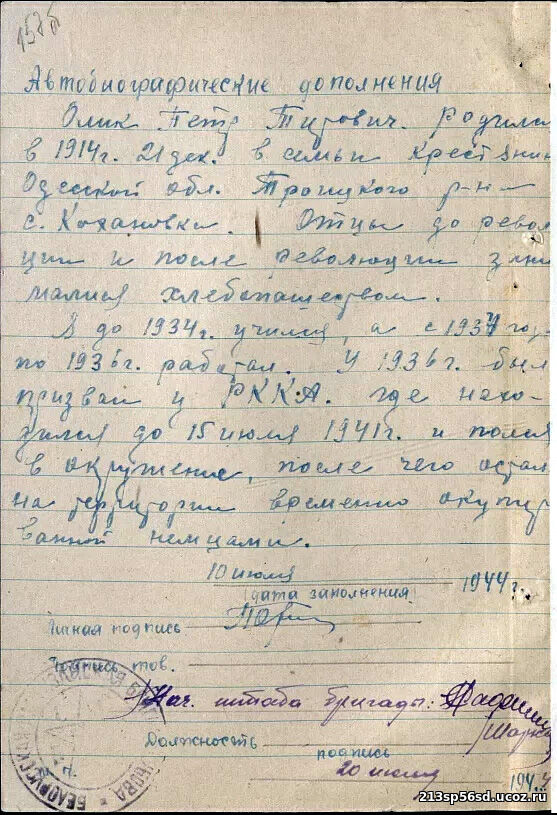 Автобиографические дополнения
Олик Петр Титович. Родился
в 1914г. 21 дек. в семьи крестянин
Одесской обл. Троицкого р-на
с. Кохановка. Отцы до револ
ции и после революции зани
мался хлебопашеством.
Я до 1934г. учился, а с 1934 года
по 1936г. работал. У 1936г. был
призван у РККА. где нахо-
дился до 15 июля 1941г. и попал
в окружение, после чего остал
на территории временно окупиро
ванной немцами.
10 июля 1944г.
(дата заполнения)
Личная подпись
Подпись тов.
Нач. штаба бригады:
Должность подпись
20 июля 194
213sp56sd.ucoz.ru